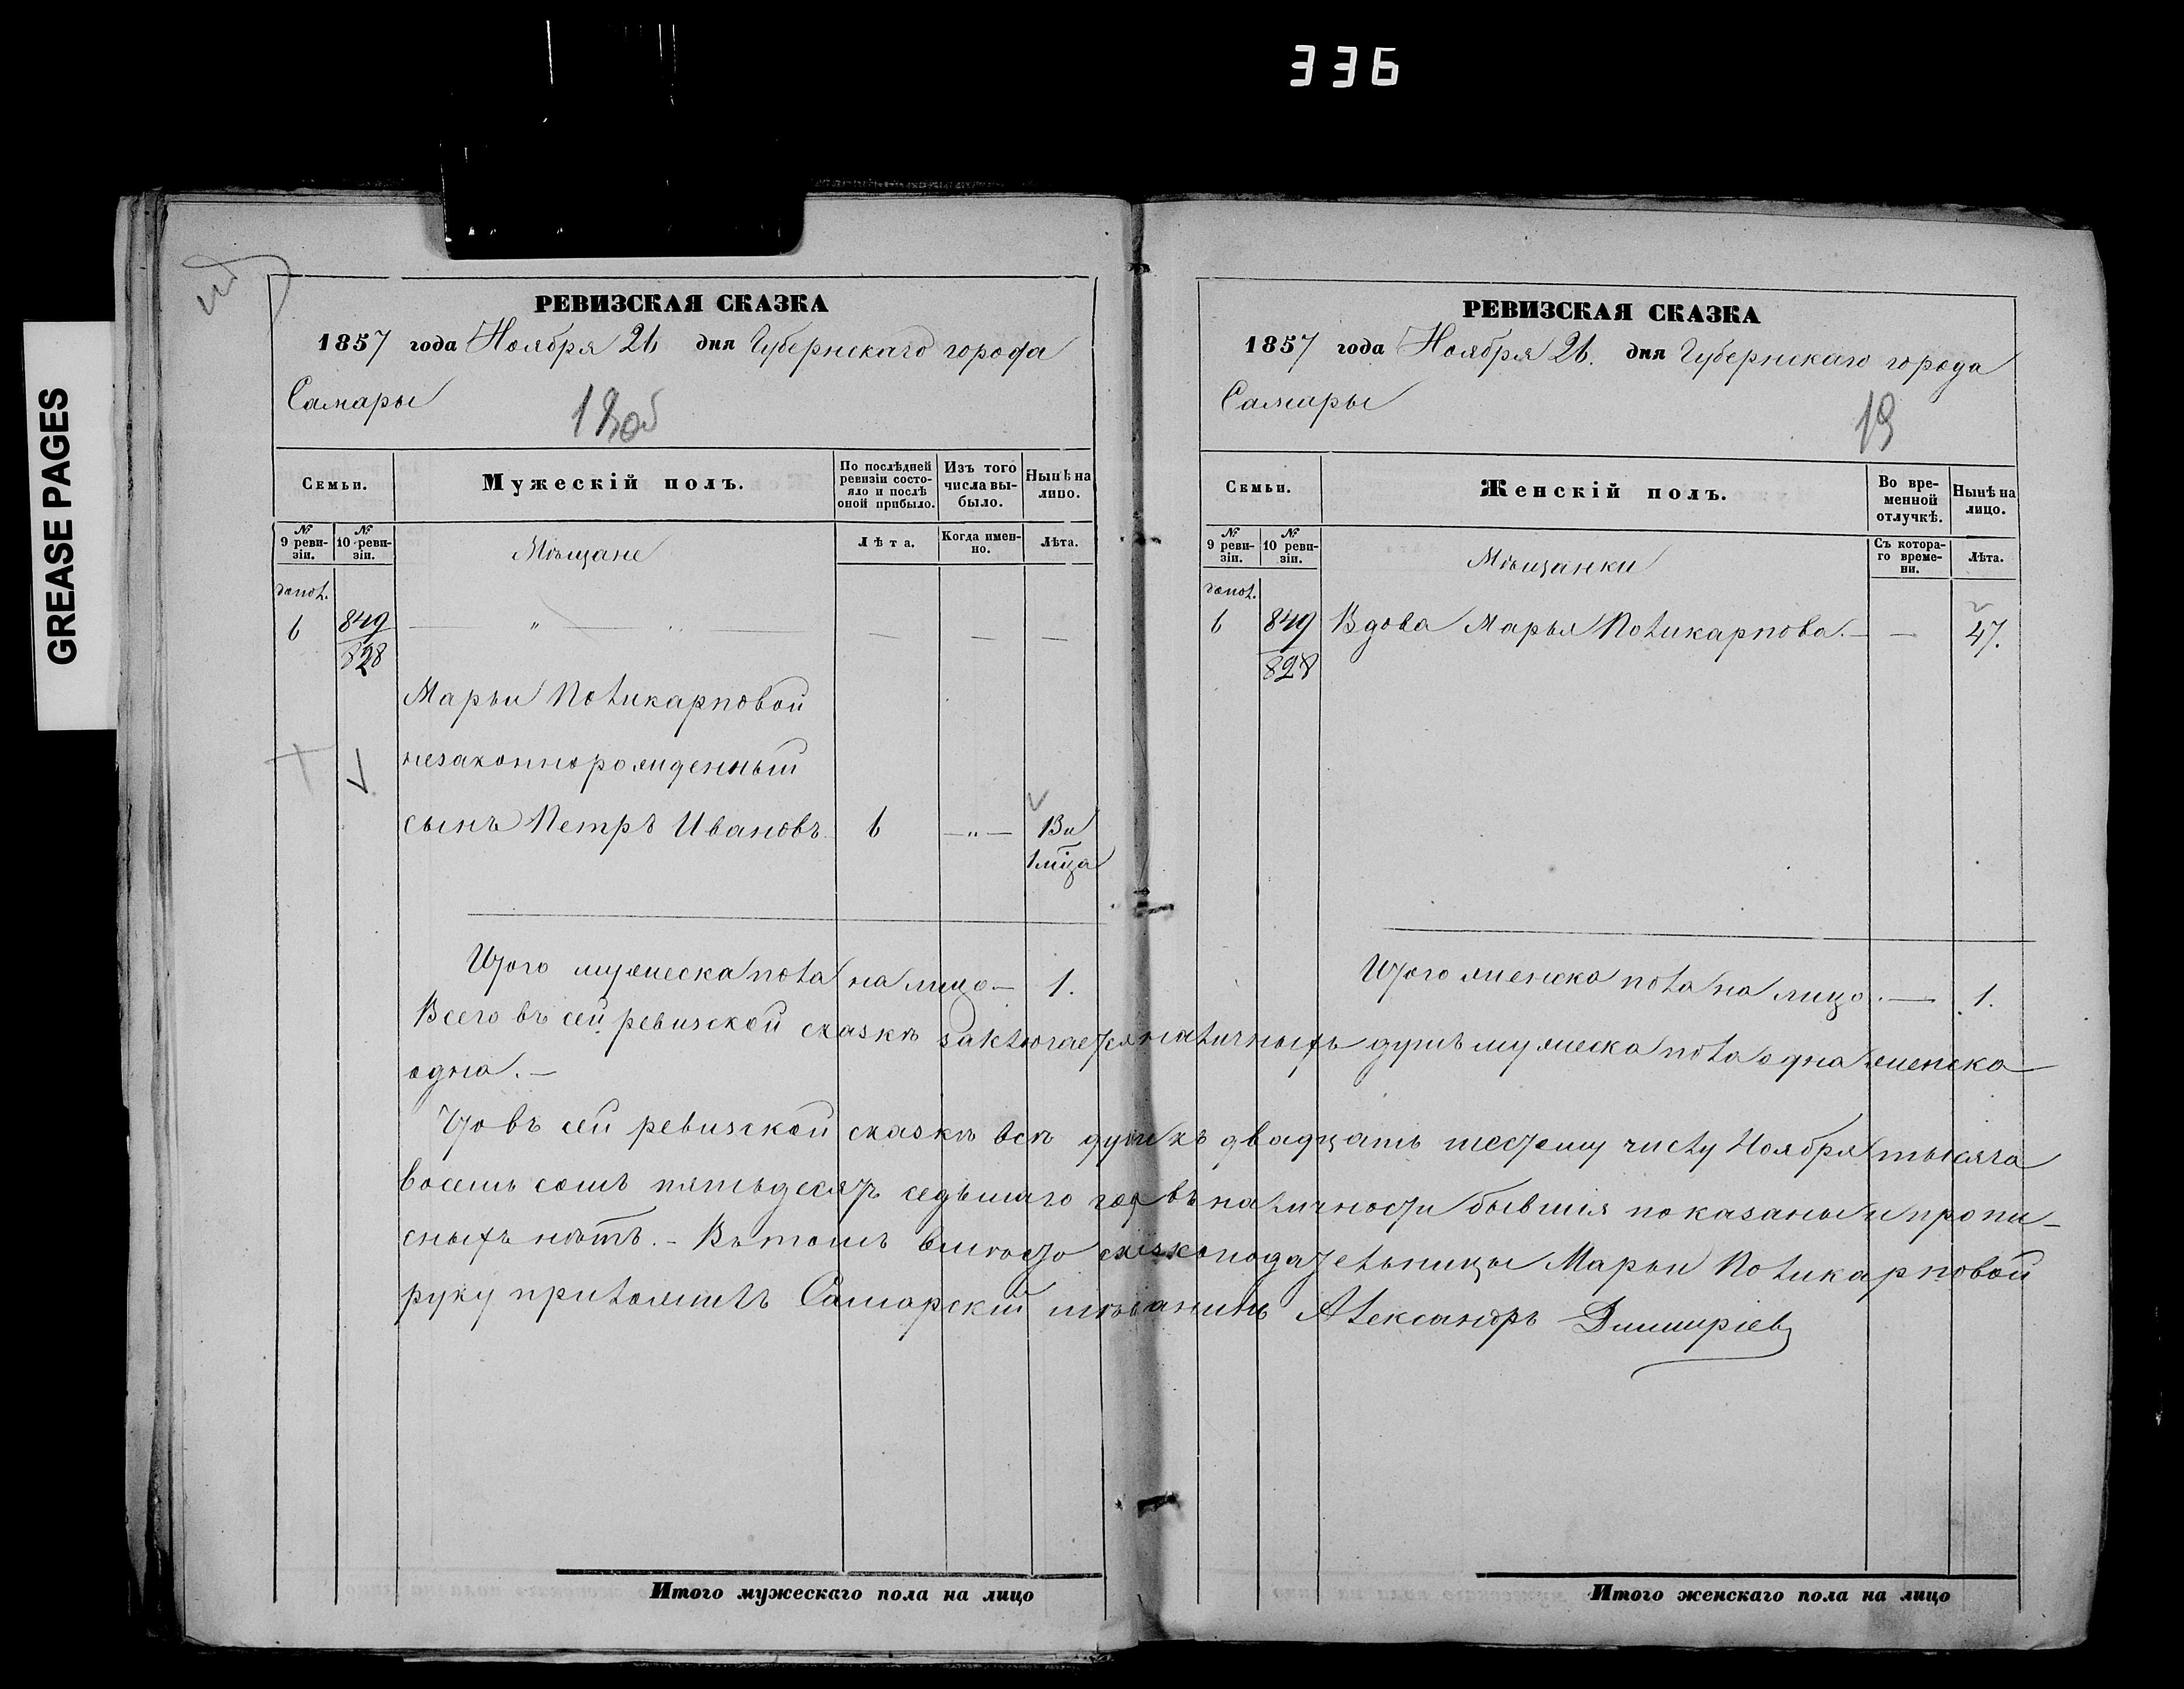 336
GREASE PAGES
РЕВИЗСКАЯ СКАЗКА
1857 года Ноября 26 дня Губернскаго города
Самары
18об
Семьи.
Мужескій полъ.
По послѣдней ревизіи состояло и послѣ оной прибыло.
Изъ того числа выбыло.
Нынѣ на лицо.
№ 9 ревизіи.
№ 10 ревизіи.
Мѣщане
Лѣта.
Когда именно.
Лѣта.
допол.
6 849 — " — — — —
828
Марьи Поликарповой
незаконнорожденный
сынъ Петръ Ивановъ 6 — " — 13 и
1 мца
Итого мужеска пола на лицо — 1.
РЕВИЗСКАЯ СКАЗКА
1857 года Ноября 26. дня Губернскаго города
Самары
19
Семьи.
Женскій полъ.
Во временной отлучкѣ.
Нынѣ на лицо.
№ 9 ревизіи.
№ 10 ревизіи.
Мѣщанки
Съ котораго времени.
Лѣта.
допол.
6 849 Вдова Марья Поликарпова. — — 47.
828
Итого женска пола на лицо. — 1.
Всего въ сей ревизской сказкѣ заключается наличныхъ душъ мужеска пола одна женска
одна. —
Что въ сей ревизской сказкѣ всѣ души къ двадцать шестому числу Ноября тысяча
восемь сотъ пятьдесятъ седьмаго год въ наличности бывшія показаны и пропи-
сныхъ нѣтъ. — Въ томъ вмѣсто сказкоподательницы Марьи Поликарповой
руку приложилъ Самарскій мѣщанинъ Александръ Димитріевъ
Итого мужескаго пола на лицо
Итого женскаго пола на лицо